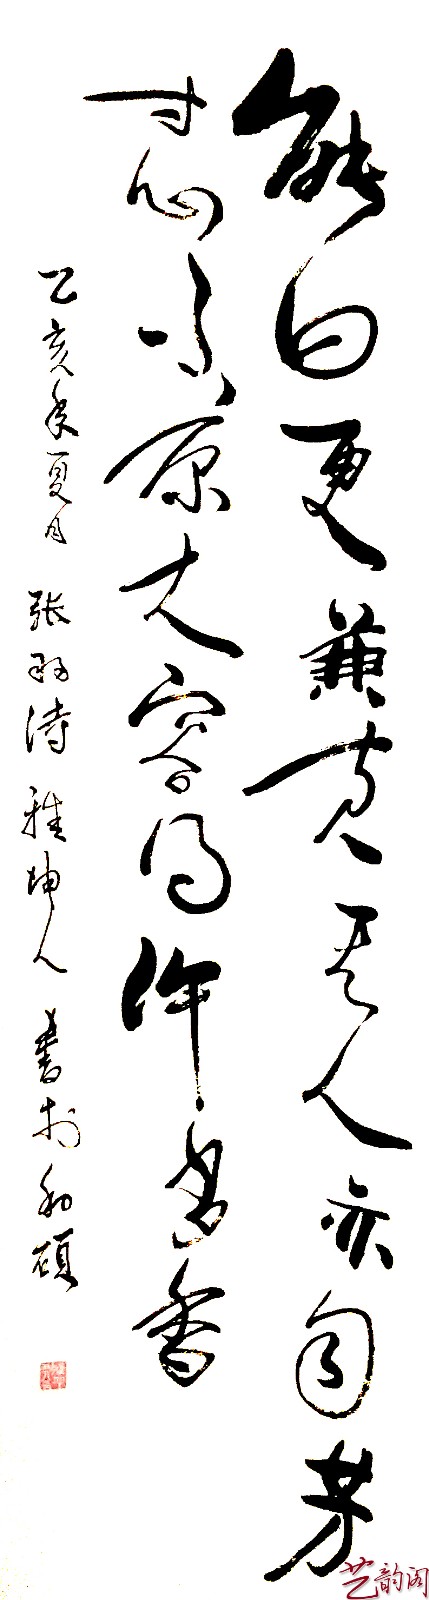 能白更兼黄无人亦自芳
寸心不原大容得许多香
乙亥年夏月 张羽诗 雅坤人 书于和硕
艺韵阁